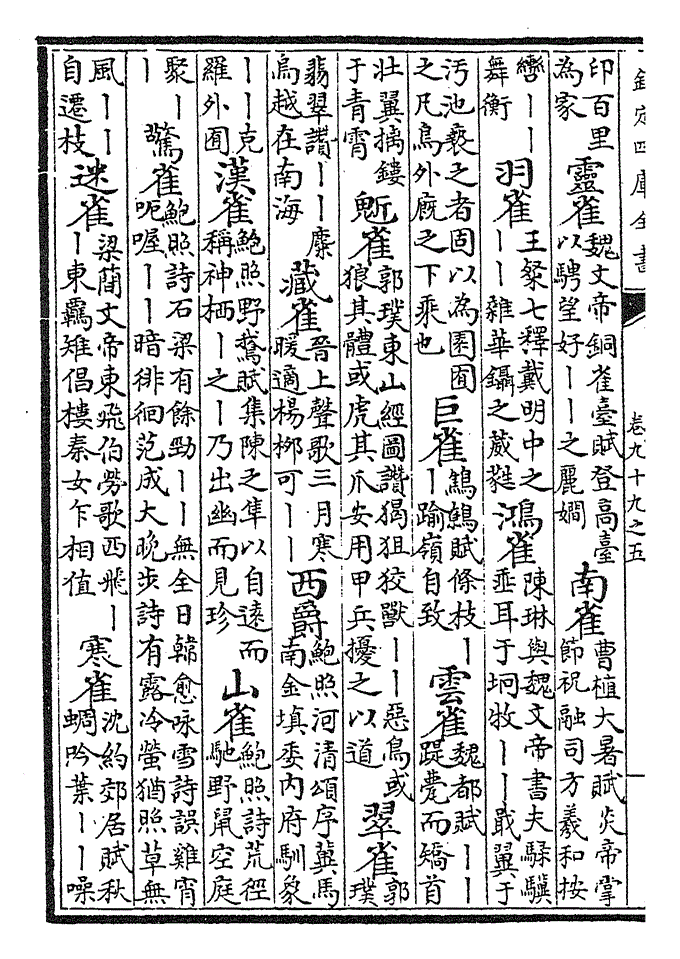 欽定四庫全書
卷九十九之五
印百里
為家
靈雀
魏文帝銅雀臺賦登高臺
以騁望好丨丨之麗嫺
南雀
曹植大暑賦炎帝掌
節祝融司方羲和按
轡丨丨
舞衡
羽雀
王粲七釋戴明中之
丨丨雜華鑷之葳蕤
鴻雀
陳琳與魏文帝書夫騄驥
垂耳于坰牧丨丨戢翼于
汚池褻之者固以為園囿
之凡鳥外廐之下乘也
巨雀
鷦鷯賦條枝丨
丨踰嶺自致
雲雀
魏都賦丨丨
踶甍而矯首
壯翼摛鏤
于青霄
鬿雀
郭璞東山經圖讚猲狙狡獸丨丨惡鳥或
狼其體或虎其爪安用甲兵擾之以道
翠雀
郭
璞
翡翠讚丨丨麋
烏越在南海
藏雀
晉上聲歌三月寒
暖適楊柳可丨丨
西爵
鮑照河清頌序冀馬
南金填委內府馴象
丨丨克
羅外囿
漢雀
鮑照野鵞賦集陳之隼以自遠而
稱神栖丨之丨乃出幽而見珍
山雀
鮑照詩荒徑
馳野鼠空庭
聚丨
丨
驚雀
鮑照詩石梁有餘勁丨丨無全日韓愈咏雪詩誤雞宵
呃喔丨丨暗徘徊范成大晚步詩有露冷螢猶照草無
風丨丨
自遷枝
迷雀
梁簡文帝東飛伯勞歌西飛丨
丨東羈雉倡樓秦女乍相值
寒雀
沈約郊居賦秋
蜩吟葉丨丨噪